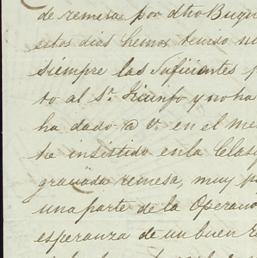 de remesa por dho Buqu
estos dias hemos tenido no
siempre las suficientes p
to al Sr. Triunfo y no ha
ha dado a V. en el me
te insistido en la Clas
graciada remesa, muy p
una parte de la Operac
esperanza de un buen